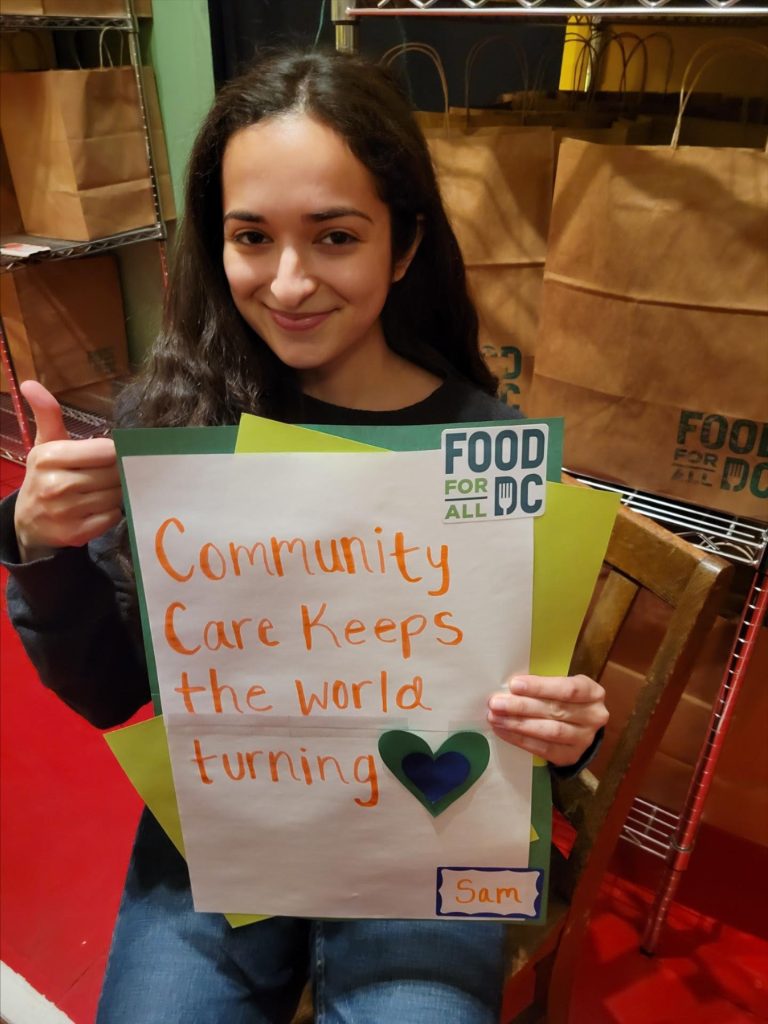 FOOD
FOR
ALL
DC
Community
Care Keeps
the world
turning
Sam
FOOD
FOR
ALL
DC